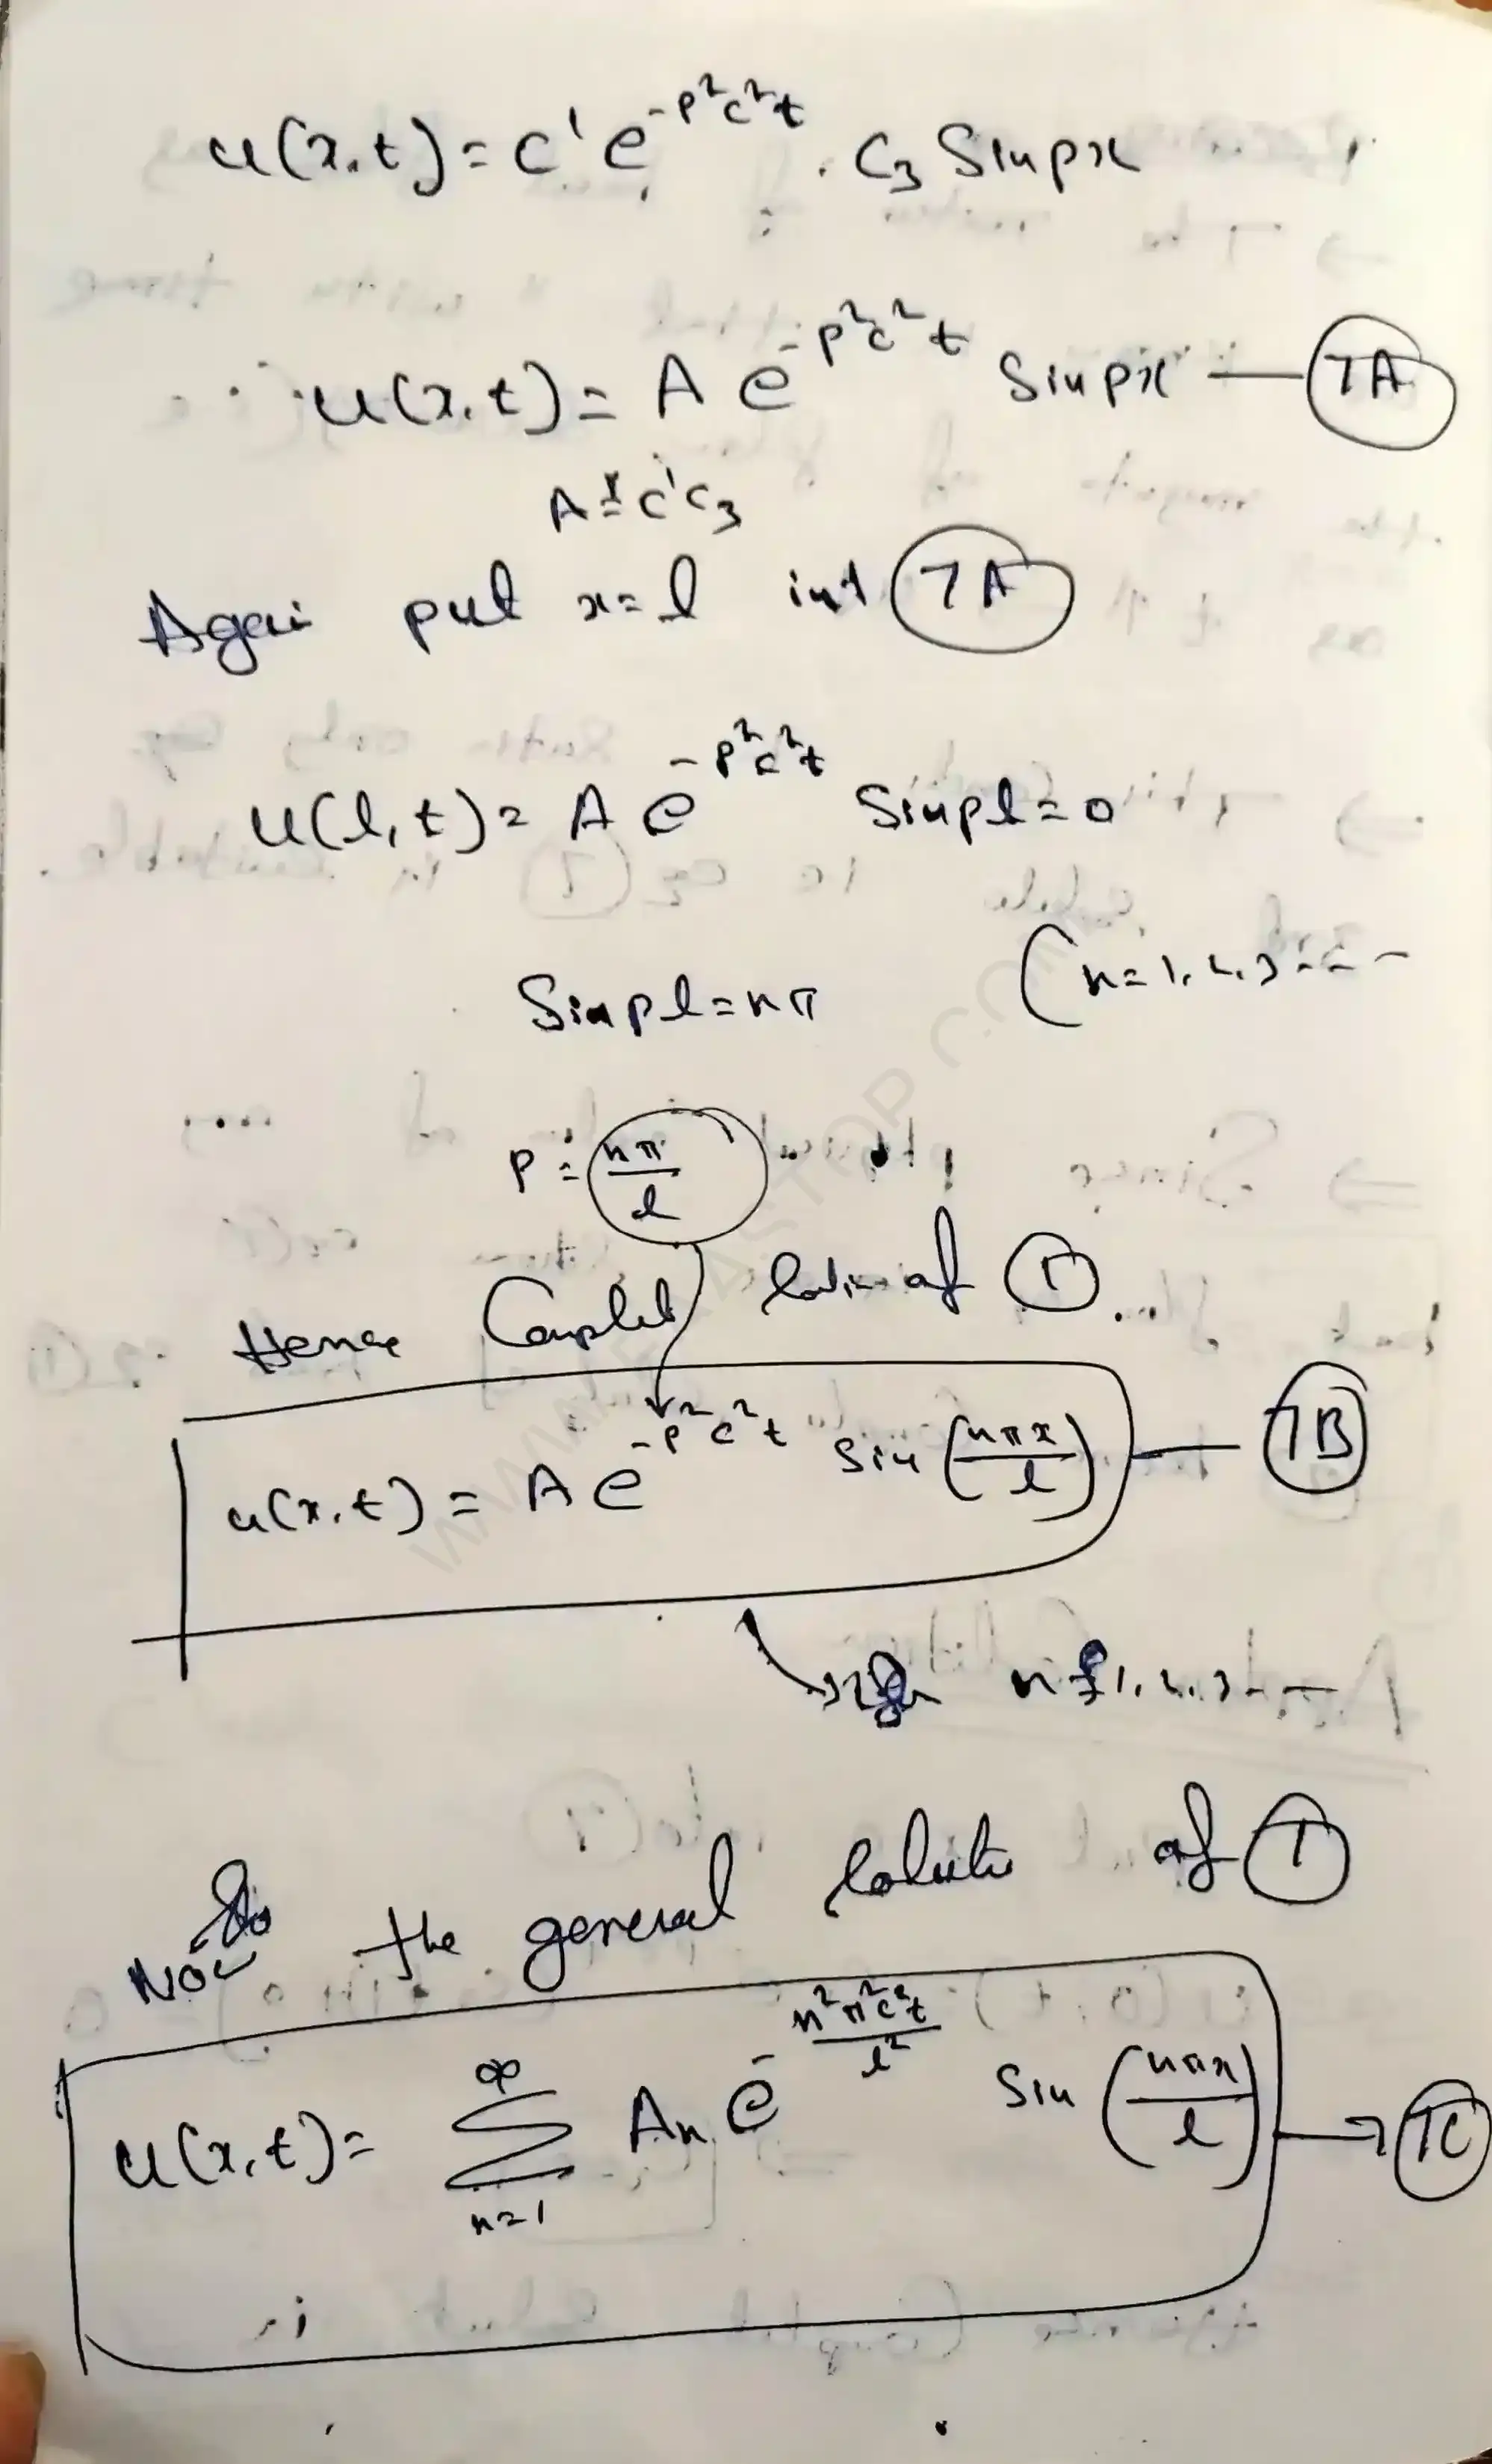 u(x,t) = c' e^{-p²c²t} . c₃ Sinpx
u(x,t) = A e^{-p²c²t} Sinpx — 7A
A = c'c₃
Again put x=l int 7A
u(l,t) = A e^{-p²c²t} Sinpl = 0
Sinpl = nπ (n=1,2,3---
p = nπ/l
Hence Complet of 1.
u(x,t) = A e^{-p²c²t} Sin (nπx/l) — 7B
n = 1,2,3---
Now the general Solutio of 1
u(x,t) = ∑_{n=1}^{∞} Aₙ e^{-n²π²c²t/l²} Sin (nπx/l) → 7C